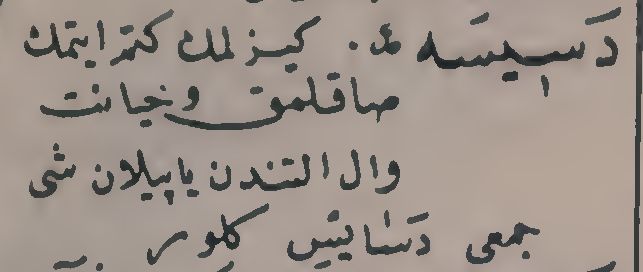 دَسِیسَه ع. کیزلمك کتم ایتمك
صاقلمق و خیانت
وال التندن یاپیلان شی
جمعی دَسَایِس کلور